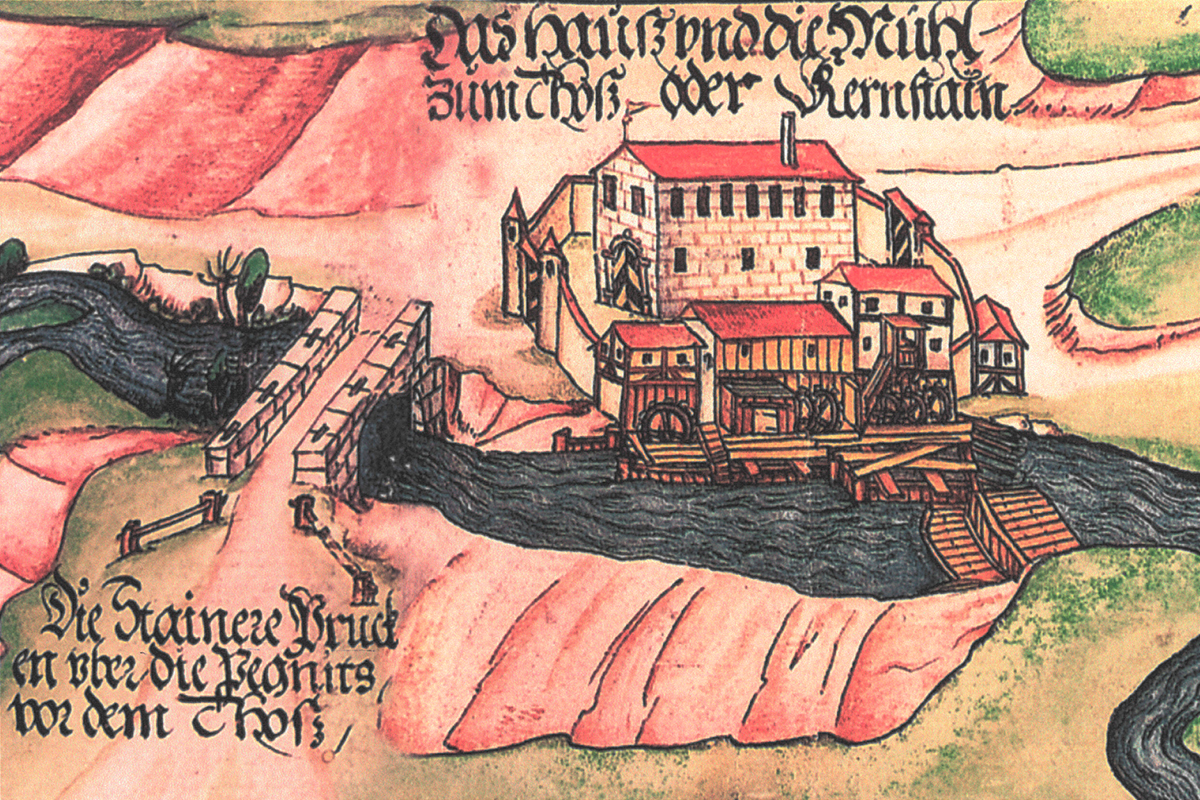 Das hauß vnd die Mühl
zum Thoß oder Rernstain
Die Stainere Pruck
en vber die Pegnits,
vor dem Thosz /